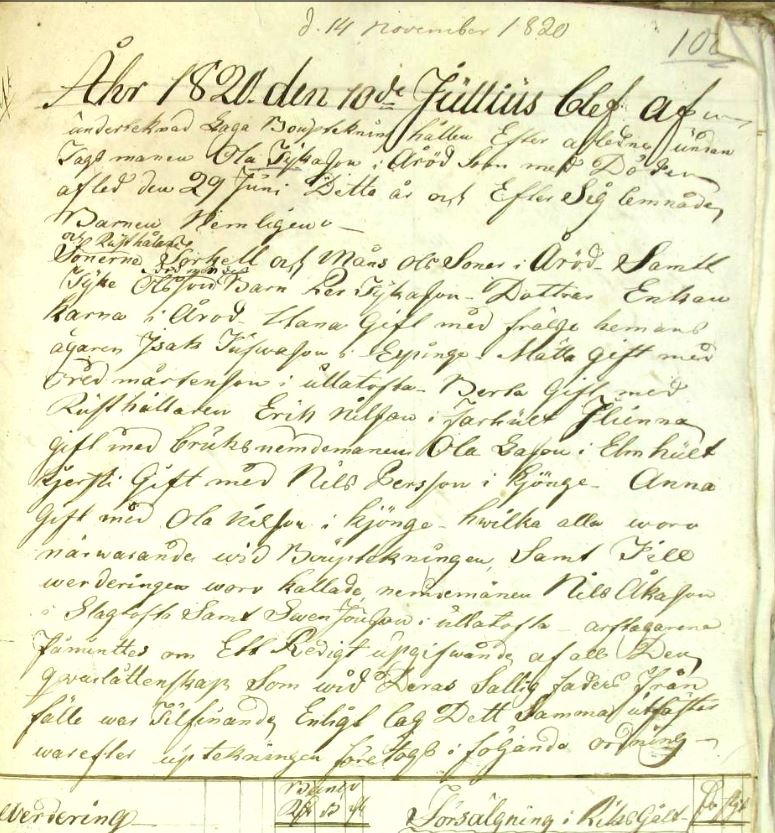 d. 14 november 1820
Åhr 1820. den 10de Jüllius blef af
ünderteknad Laga Boupteknin hållen Efter afledne ündan
Tags manen Ola Tykason i Åröd Som med Döden
afled den 29 Juni Detta år och Efter Sig lemnade
Barnen Nemligen
och Rüsthållare
Sönerne Torkell och Måns Ols Soner i Åröd Samtt
Tyke Olssons Barn Per Tykason Döttrar Enkan
Karna i Åröd Hana Gift med frälse hemans
ägaren Isak Tufwason i Espinge Mätta gift med
Tred mårtenson i üllatofta Berta Gift med
Rüsthållaren Erik Nilsson i Farhült Elienna
gift med brüks nemdemanen Ola Lason i Elmhült
Kjersti Gift med Nils Persson i Kjönge Anna
Gift med Ola Nilsson i Kjönge hwilka alla woro
närwarande wid Boüptekningen, Samt Till
werderingen woro kallade, nemdemänen Nils Åkason
i Slagtofta Samt Swen Jönson i üllatofta arftagarena
påmintes om Ett Redigt üpgifwande af all Den
qvarlåttenskap Som wid Deras Salig faders från
fälle war Tilfinandes Enligt lag Dett Samma utfästes
warefter üptekningen företogs i följande ordning
werdering
Banco
Rdr s rst
Försälgning i Riksgält